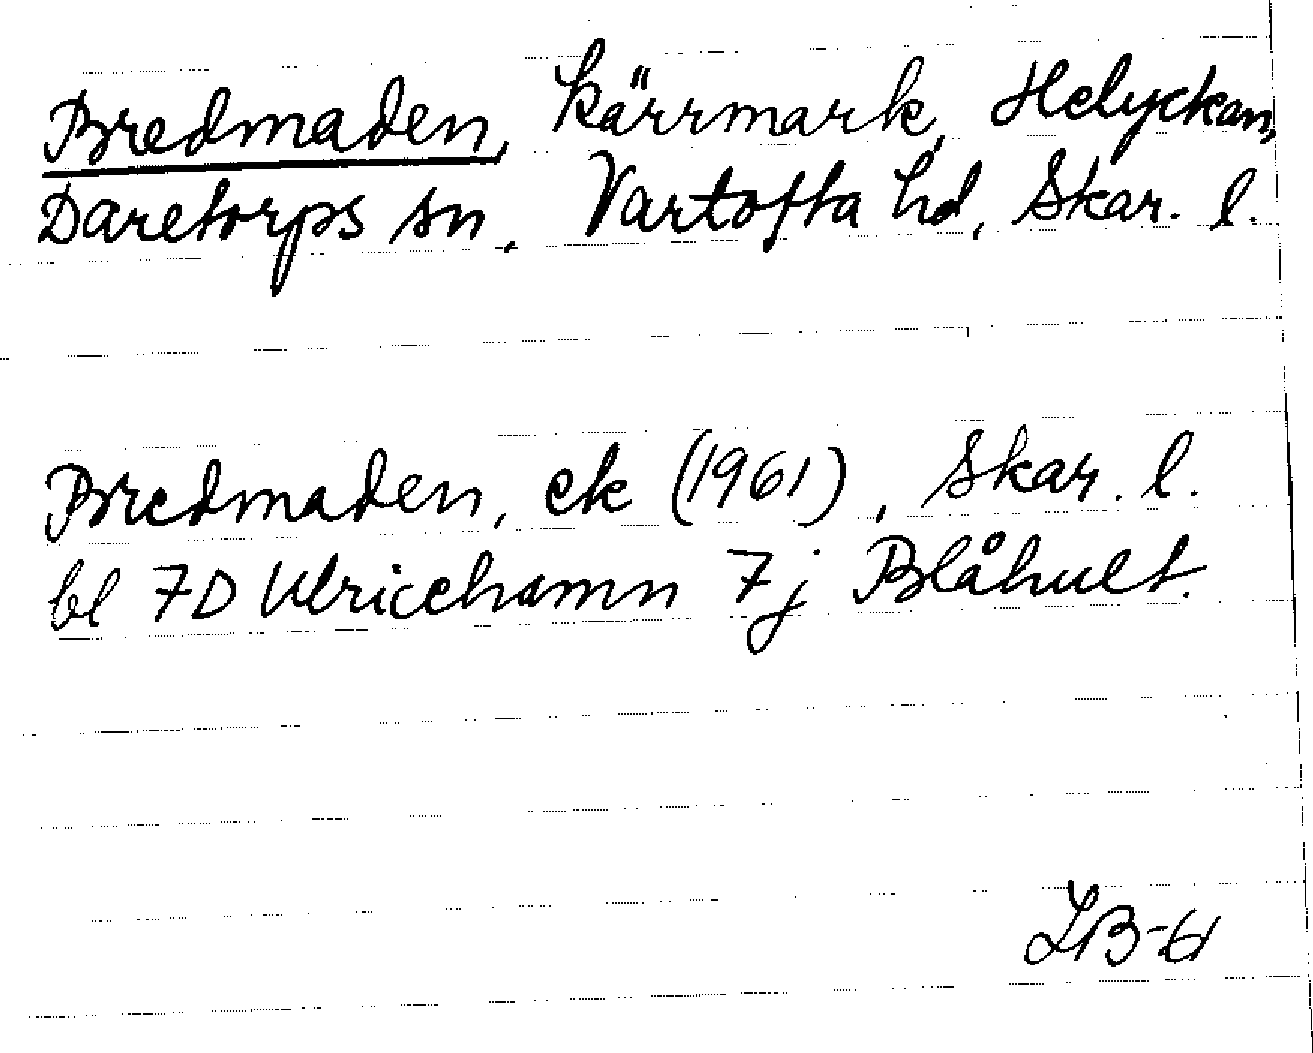 Bredmaden, kärrmark, Helyckan,
Daretorps sn, Vartofta hd, Skar. l.
Bredmaden, ek (1961), Skar. l.
bl 7D Ulricehamn 7j Blåhult.
LB-61